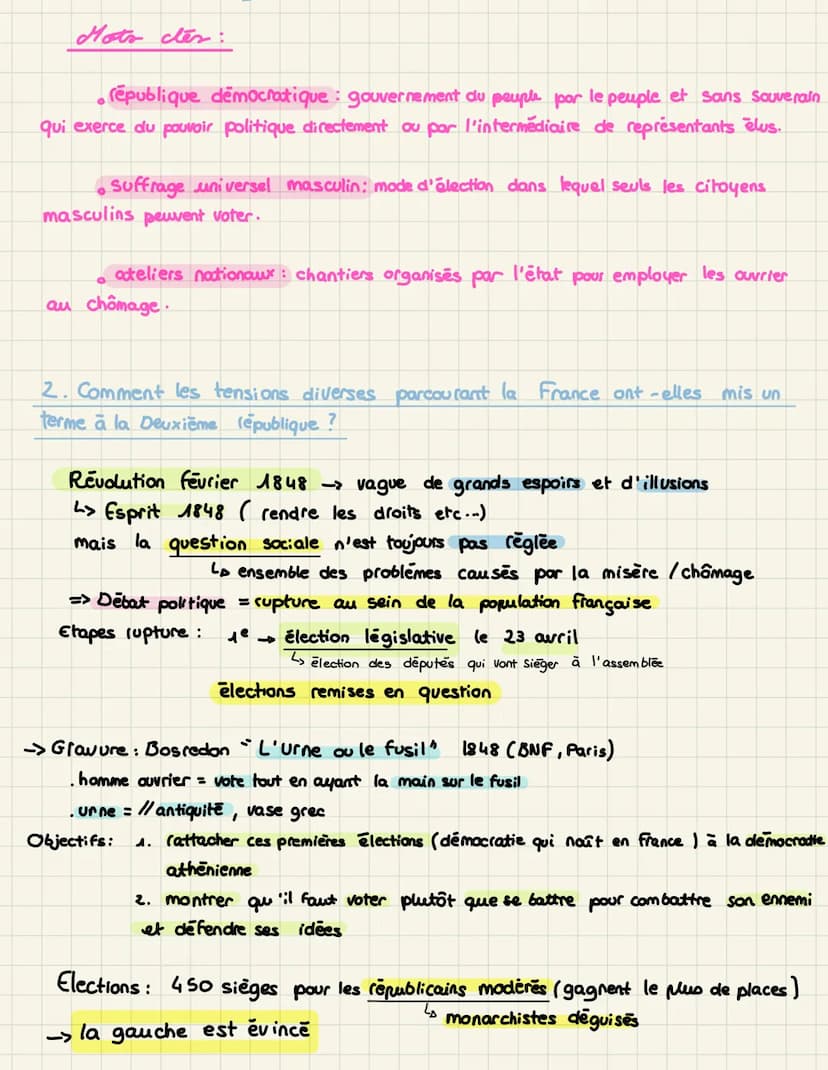 Mots clés :
• république démocratique : gouvernement du peuple par le peuple et sans souverain
qui exerce du pouvoir politique directement ou par l'intermédiaire de représentants élus.
• suffrage universel masculin : mode d'élection dans lequel seuls les citoyens
masculins peuvent voter.
• ateliers nationaux : chantiers organisés par l'état pour employer les ouvrier
au chômage.
2. Comment les tensions diverses parcourant la France ont-elles mis un
terme à la Deuxième république ?
Révolution février 1848 → vague de grands espoirs et d'illusions
↳ Esprit 1848 ( rendre les droits etc...)
mais la question sociale n'est toujours pas réglée
↳ ensemble des problèmes causés par la misère /chômage
=> Débat politique = rupture au sein de la population française
Etapes rupture : 1e → élection législative le 23 avril
↳ élection des députés qui vont siéger à l'assemblée
élections remises en question
→ Gravure : Bosredon "L'urne ou le fusil" 1848 (BNF, Paris)
. homme ouvrier = vote tout en ayant la main sur le fusil
. urne = // antiquité, vase grec
Objectifs : 1. rattacher ces premières élections (démocratie qui naît en france ) à la démocratie
athénienne
2. montrer qu'il faut voter plutôt que se battre pour combattre son ennemi
et défendre ses idées
Elections : 450 sièges pour les républicains modérés (gagnent le plus de places)
↳ monarchistes déguisés
→ la gauche est évincé